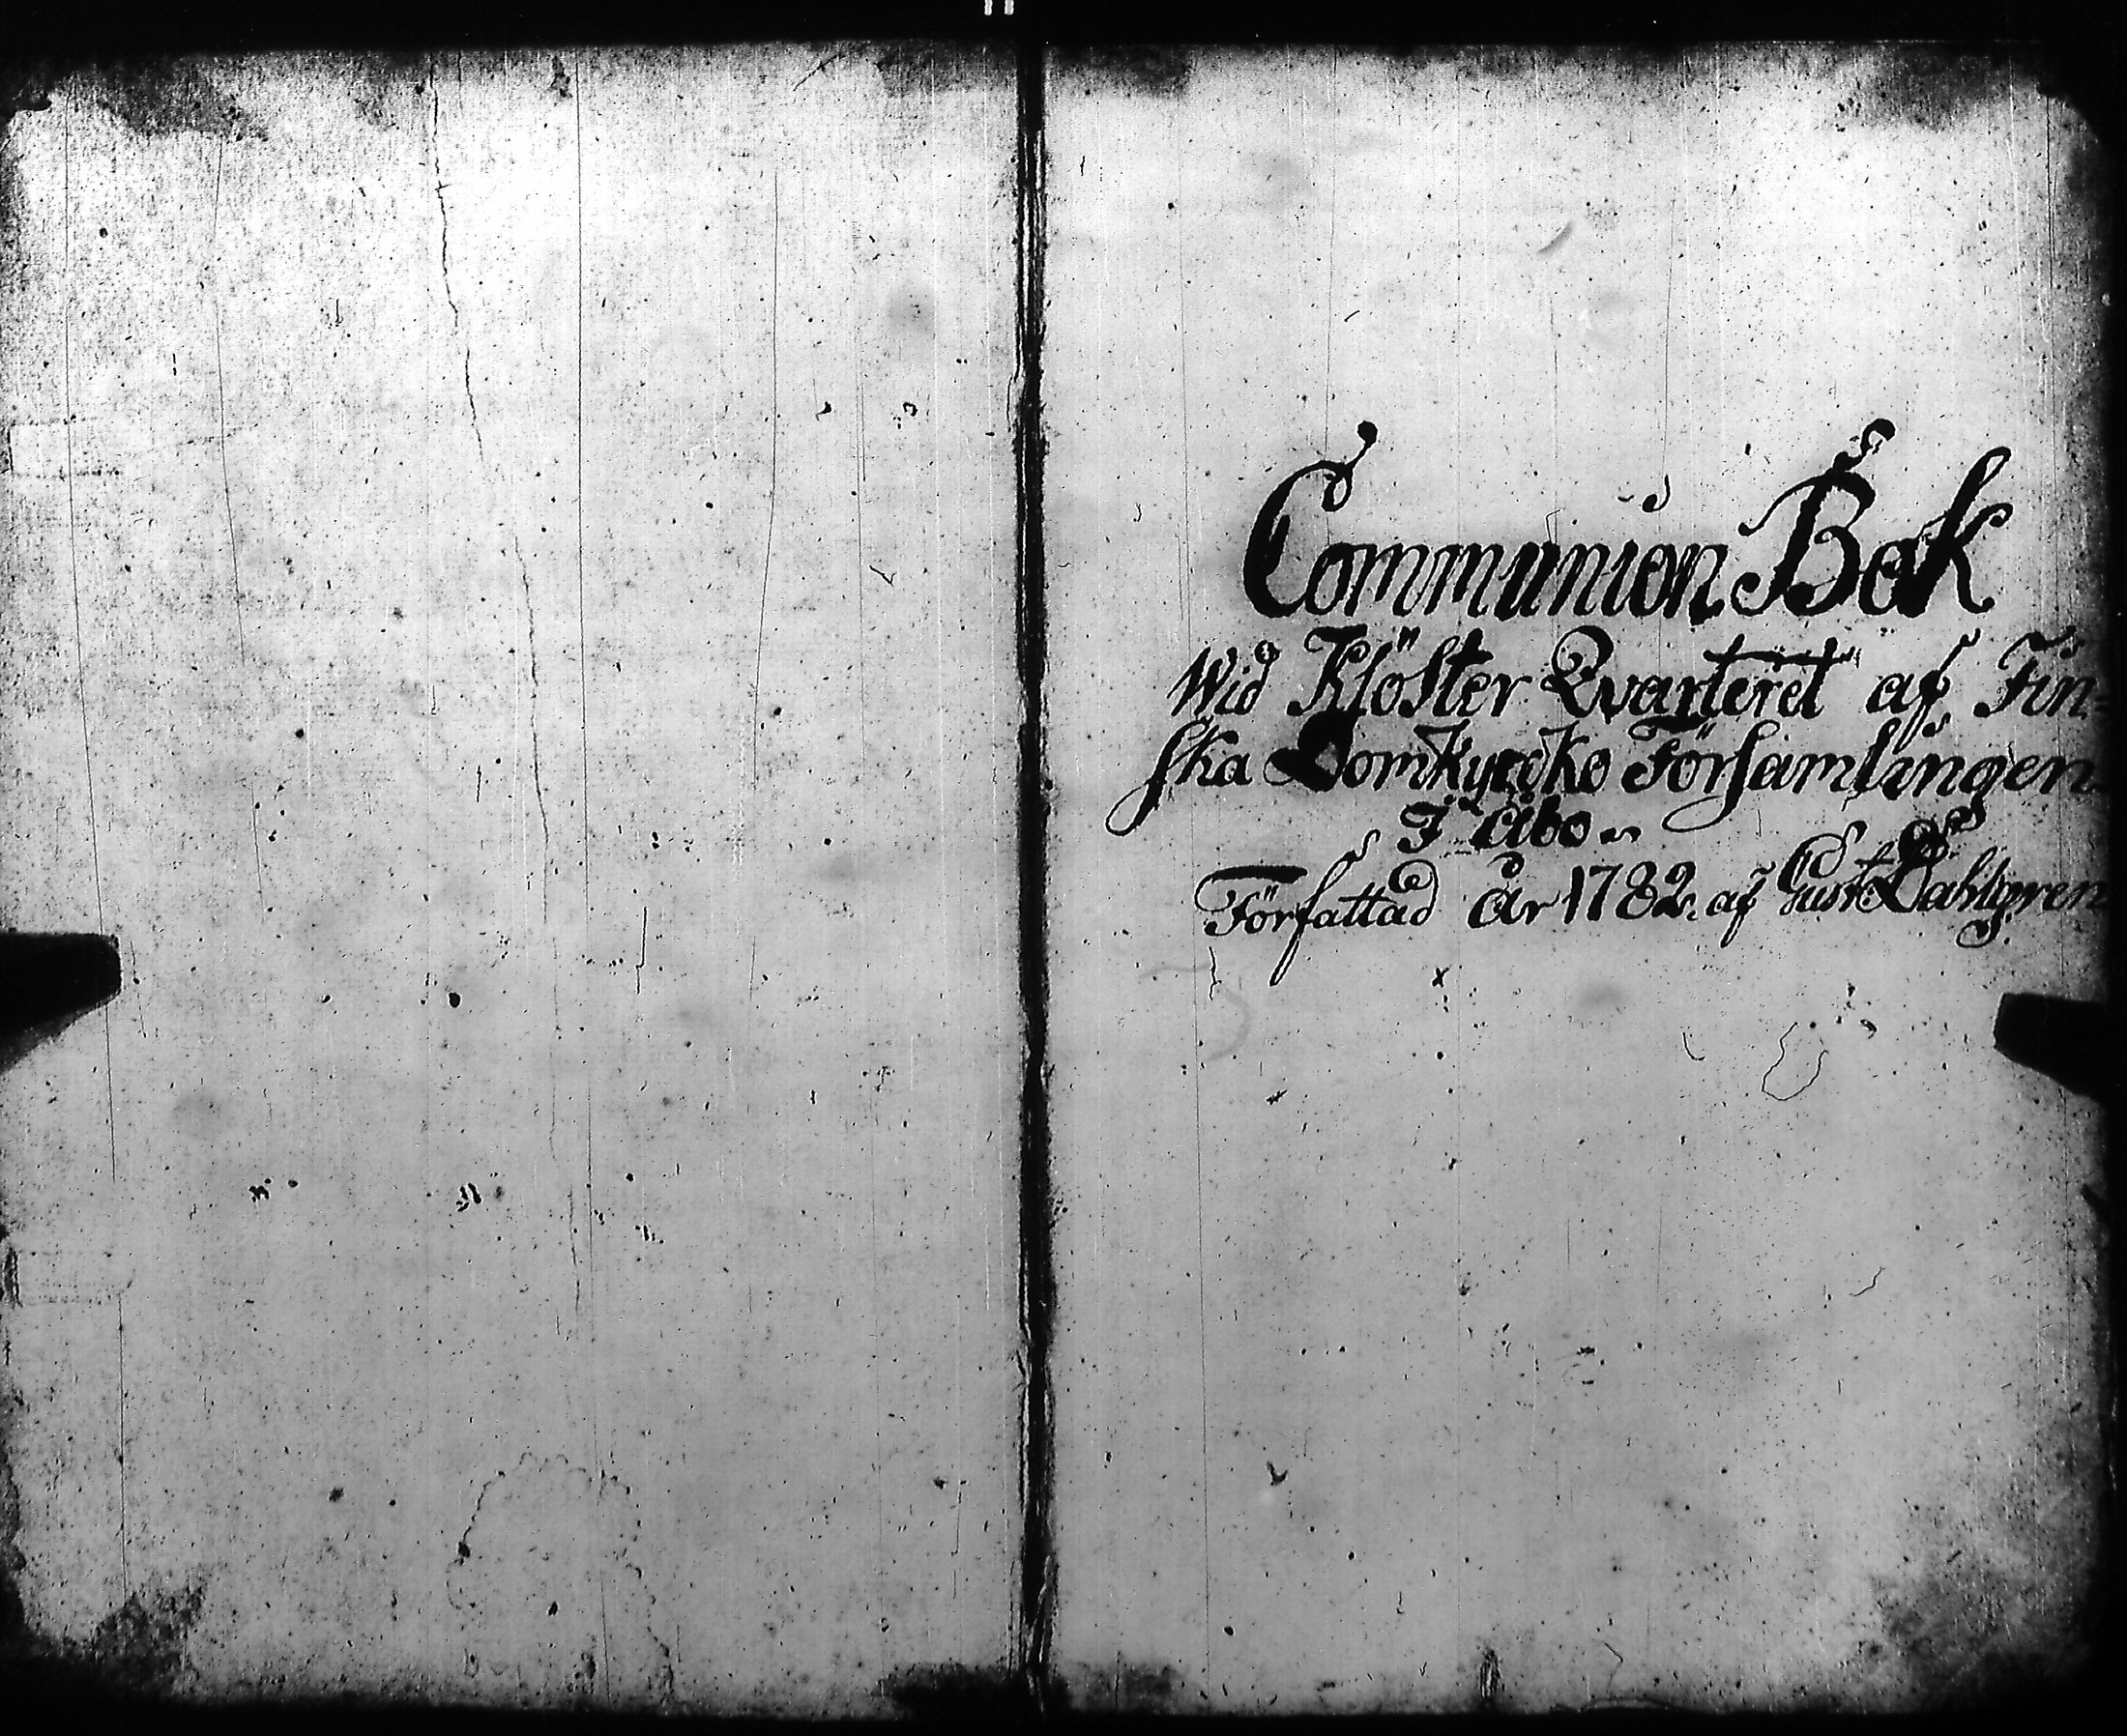 Communion Bok
Wid Klöster Qvarteret af Fin-
ska Domkyrcko Församlingen
I Åbo
Författad år 1782. af Gust. Dahlgren